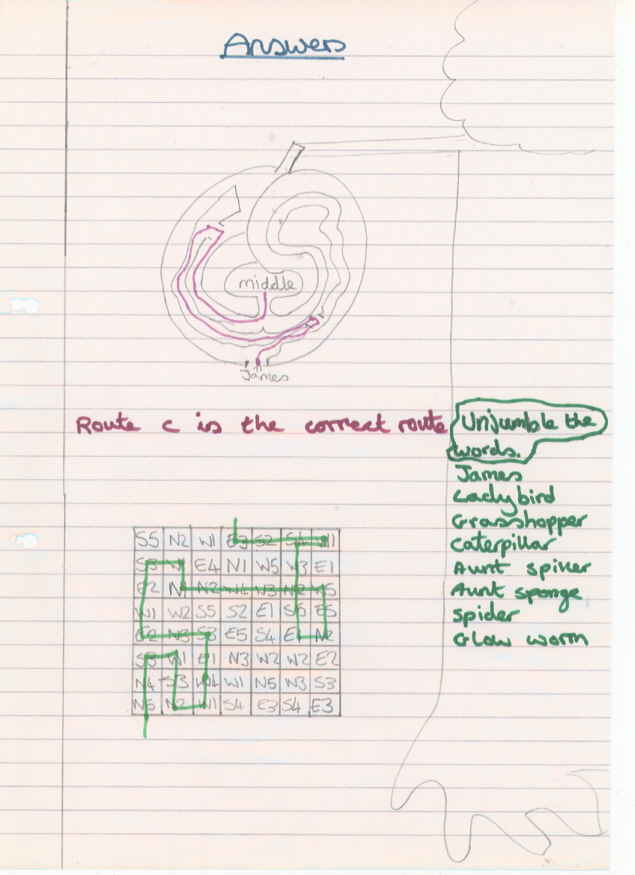 Answers
middle
James
Route c is the correct route
Unjumble the
words.
James
Ladybird
Grasshopper
caterpillar
Aunt spiker
Aunt sponge
spider
Glow worm
S5 N2 W1 E3 S2 S4 W1
E4 N1 W5 W3 E1
E2
W1 W2 S5 S2 E1 S6 E5
E2 N3 S3 E5 S4 E1 N2
S3 W1 E1 N3 W2 W2 E2
N4 S3 W4 W1 N5 W3 S3
N5 N2 W1 S4 E3 S4 E3